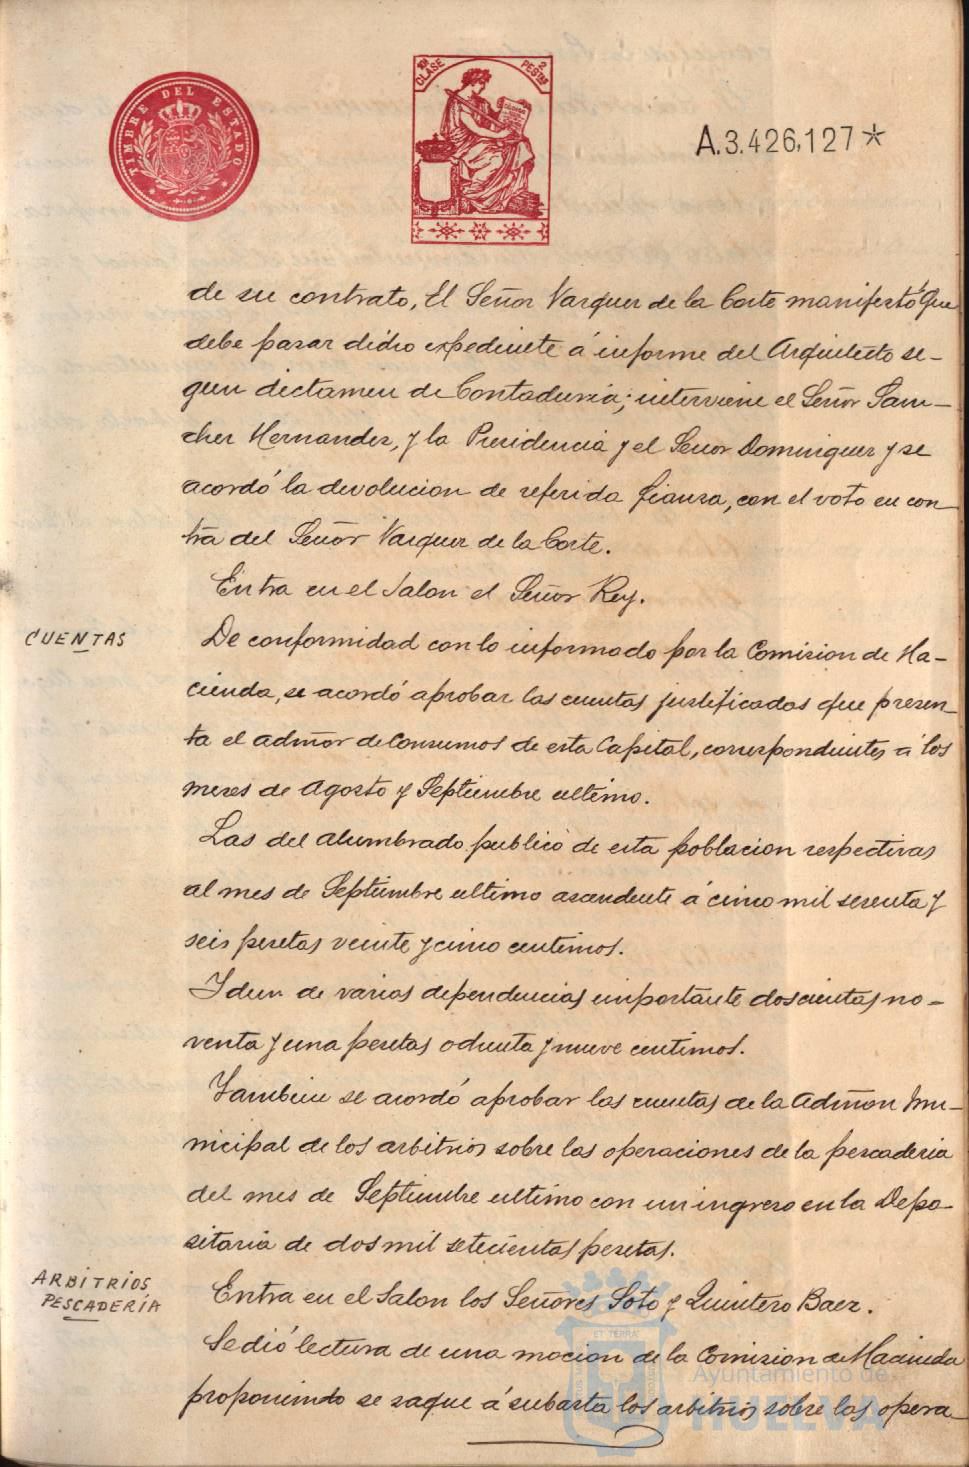 TIMBRE DEL ESTADO
10ª CLASE 2 PESTAS
A.3.426,127*
de su contrato, El Señor Vazquez de la Corte manifestó que
debe pasar dicho expediente á informe del Arquitecto se-
gun dictamen de Contaduria; interviene el Señor San-
chez Hernandez, y la Presidencia y el Señor Dominguez y se
acordó la devolucion de referida fianza, con el voto en con
tra del Señor Vazquez de la Corte.
Entra en el Salon el Señor Rey.
CUENTAS
De conformidad con lo informado por la Comision de Ha-
cienda, se acordó aprobar las cuentas justificadas que presen-
ta el admor de Consumos de esta Capital, correspondientes á los
meses de Agosto y Septiembre ultimo.
Las del alumbrado publico de esta poblacion respectivas
al mes de Septiembre ultimo ascendente á cinco mil sesenta y
seis pesetas veinte y cinco centimos.
Idem de varias dependencias importante doscientas no-
venta y una pesetas ochenta y nueve centimos.
Tambien se acordó aprobar las cuentas de la Admon Mu-
nicipal de los arbitrios sobre las operaciones de la pescaderia
del mes de Septiembre ultimo con un ingreso en la Depo-
sitaria de dos mil setecientas pesetas.
ARBITRIOS
PESCADERÍA
Entra en el Salon los Señores Soto y Quintero Baez.
Se dió lectura de una mocion de la Comision de Hacienda
proponiendo se saque á subasta los arbitrios sobre las opera-
ET TERRA
Ayuntamiento de
HUELVA